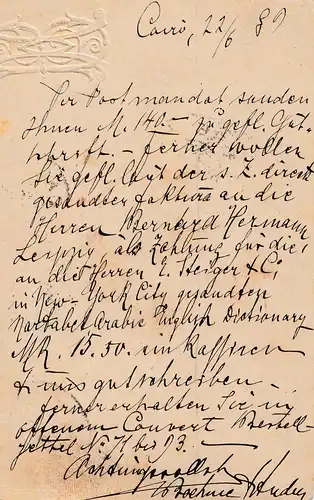 Cairo, 22/6 89
Per Postmandat senden
Ihnen M. 140.- zu gefl. Gut-
schrift. - ferner wollen
Sie gefl. laut der s. Z. direkt
gesandten faktura an die
Herren Bernard Hermann
Leipzig als Zahlung für die
an die Herren E. Steiger & Co,
in New-York City gesandten
Kartabet Arabic English Dictionary
MK. 15.50. ein kassiren
& uns gutschreiben -
ferner erhalten Sie in
offenem Couvert Bestell-
zettel No 71 bis 93. -
Achtungsvollst